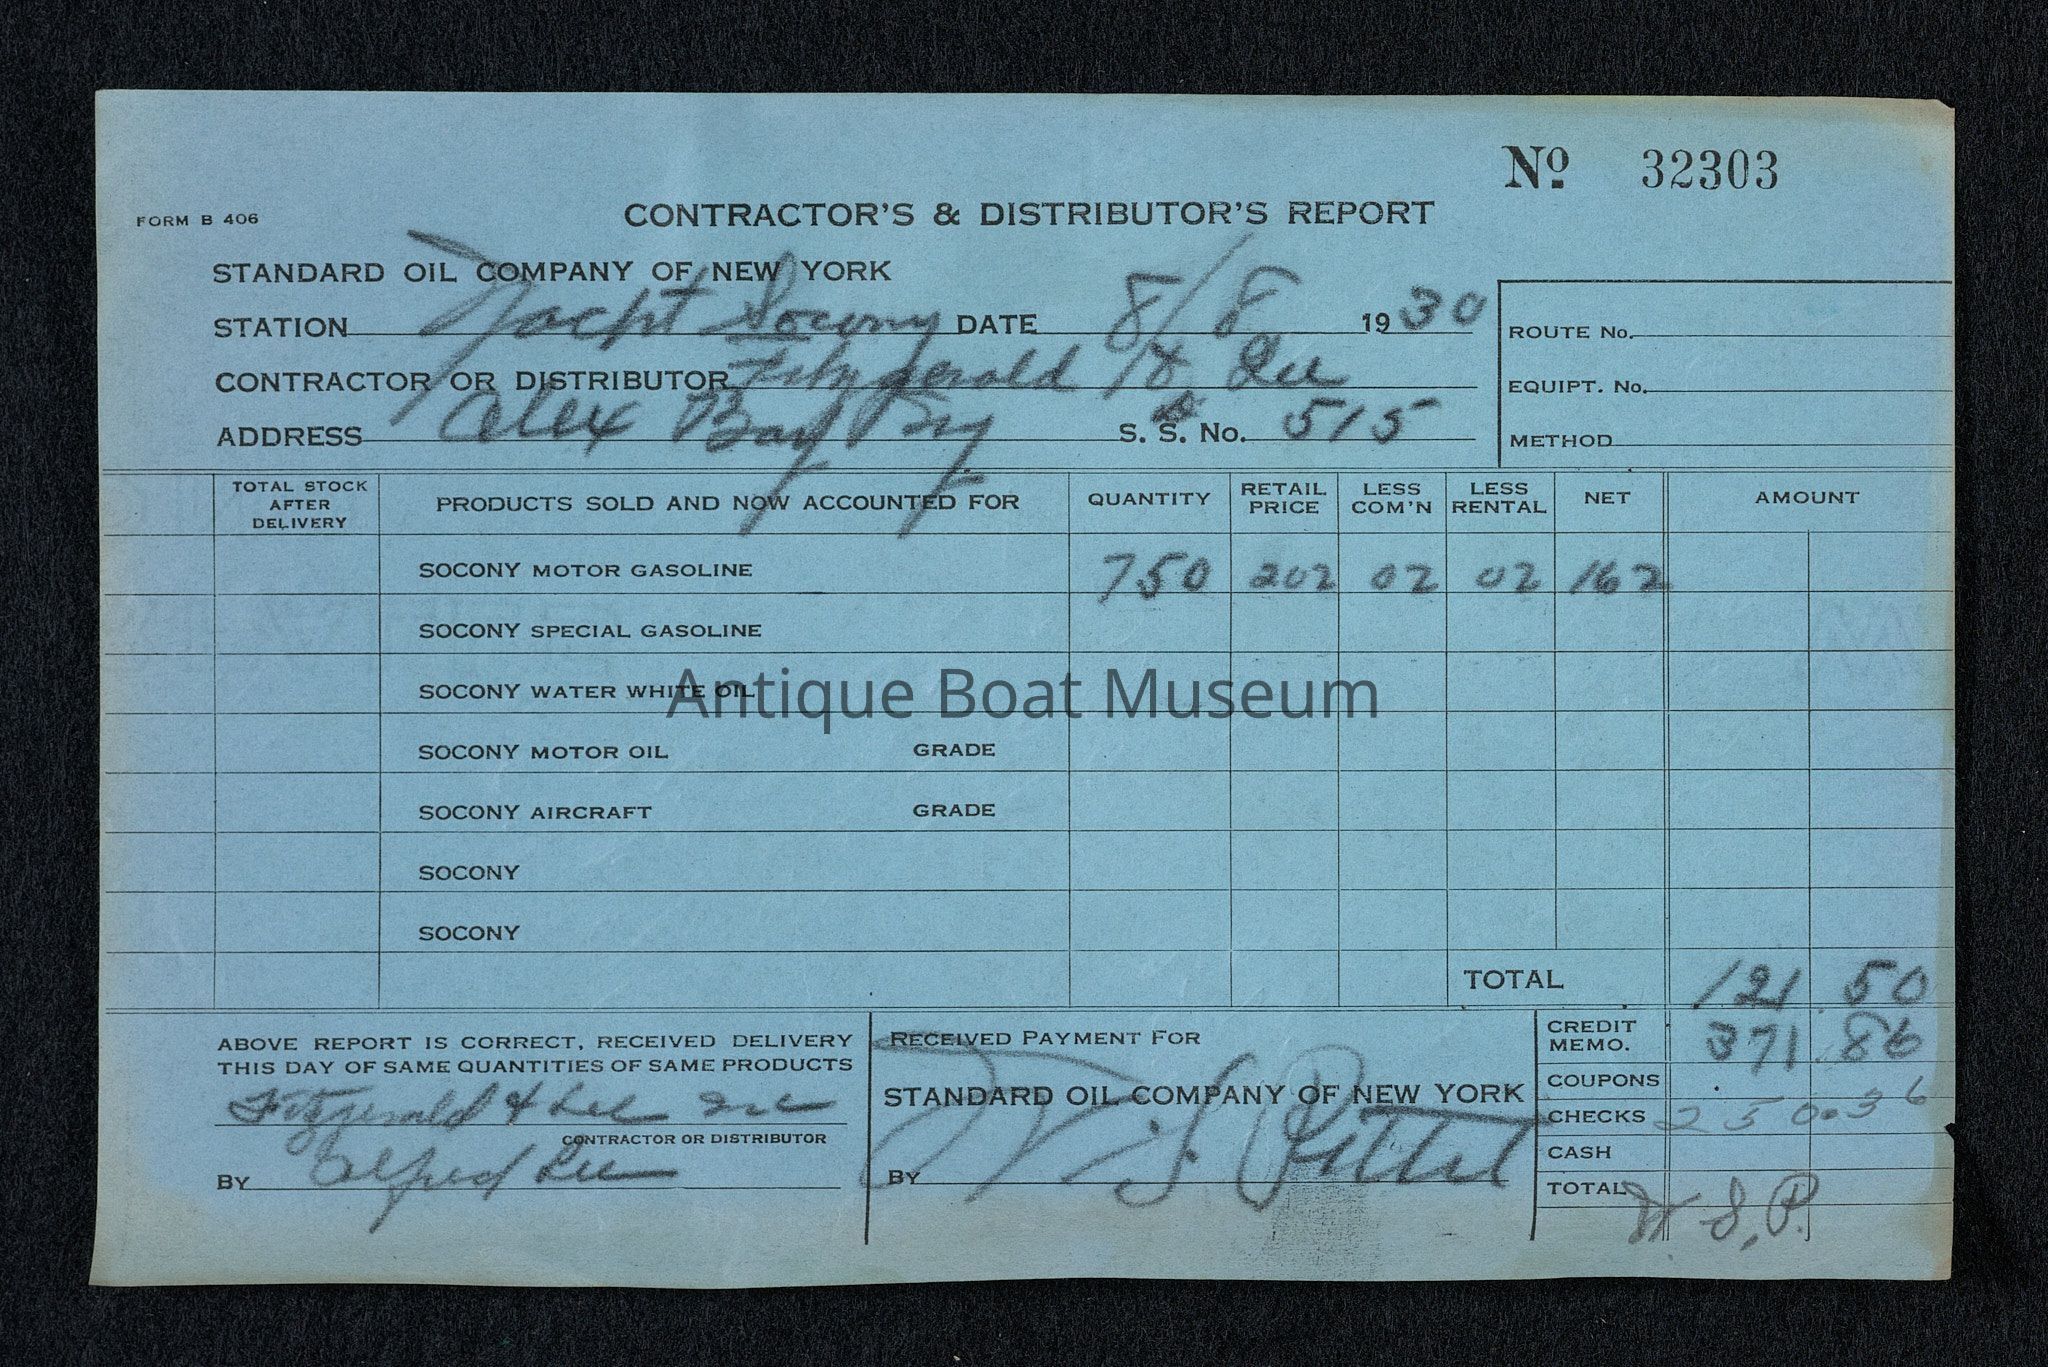 Nº 32303
FORM B 406
CONTRACTOR'S & DISTRIBUTOR'S REPORT
STANDARD OIL COMPANY OF NEW YORK
STATION Yacht Socony DATE 8/8 1930
ROUTE No.
CONTRACTOR OR DISTRIBUTOR Fitzgerald & Lee
EQUIPT. No.
ADDRESS Alex Bay N.Y. S. S. No. 515
METHOD
TOTAL STOCK AFTER DELIVERY PRODUCTS SOLD AND NOW ACCOUNTED FOR QUANTITY RETAIL PRICE LESS COM'N LESS RENTAL NET AMOUNT
SOCONY MOTOR GASOLINE 750 202 02 02 162
SOCONY SPECIAL GASOLINE
SOCONY WATER WHITE OIL
Antique Boat Museum
SOCONY MOTOR OIL GRADE
SOCONY AIRCRAFT GRADE
SOCONY
SOCONY
TOTAL 121 50
ABOVE REPORT IS CORRECT, RECEIVED DELIVERY
THIS DAY OF SAME QUANTITIES OF SAME PRODUCTS
Fitzgerald & Lee Inc
CONTRACTOR OR DISTRIBUTOR
BY Alfred Lee
RECEIVED PAYMENT FOR
STANDARD OIL COMPANY OF NEW YORK
BY W. S.
CREDIT MEMO. 371.86
COUPONS
CHECKS 250.36
CASH
TOTAL
W. S. P.